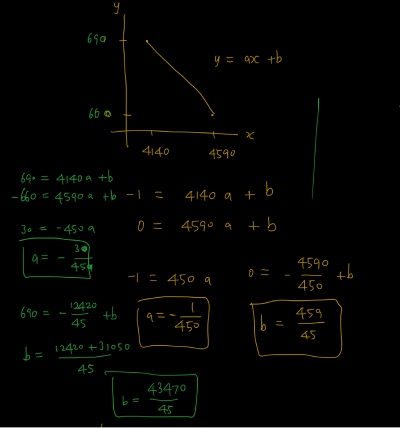 y
690
y = ax + b
660
x
4140
4590
690 = 4140 a + b
-660 = 4590 a + b
30 = -450 a
a = - 30/450
690 = - 12420/45 + b
b = 12420 + 31050/45
b = 43470/45
-1 = 4140 a + b
0 = 4590 a + b
-1 = 450 a
a = - 1/450
0 = - 4590/450 + b
b = 459/45